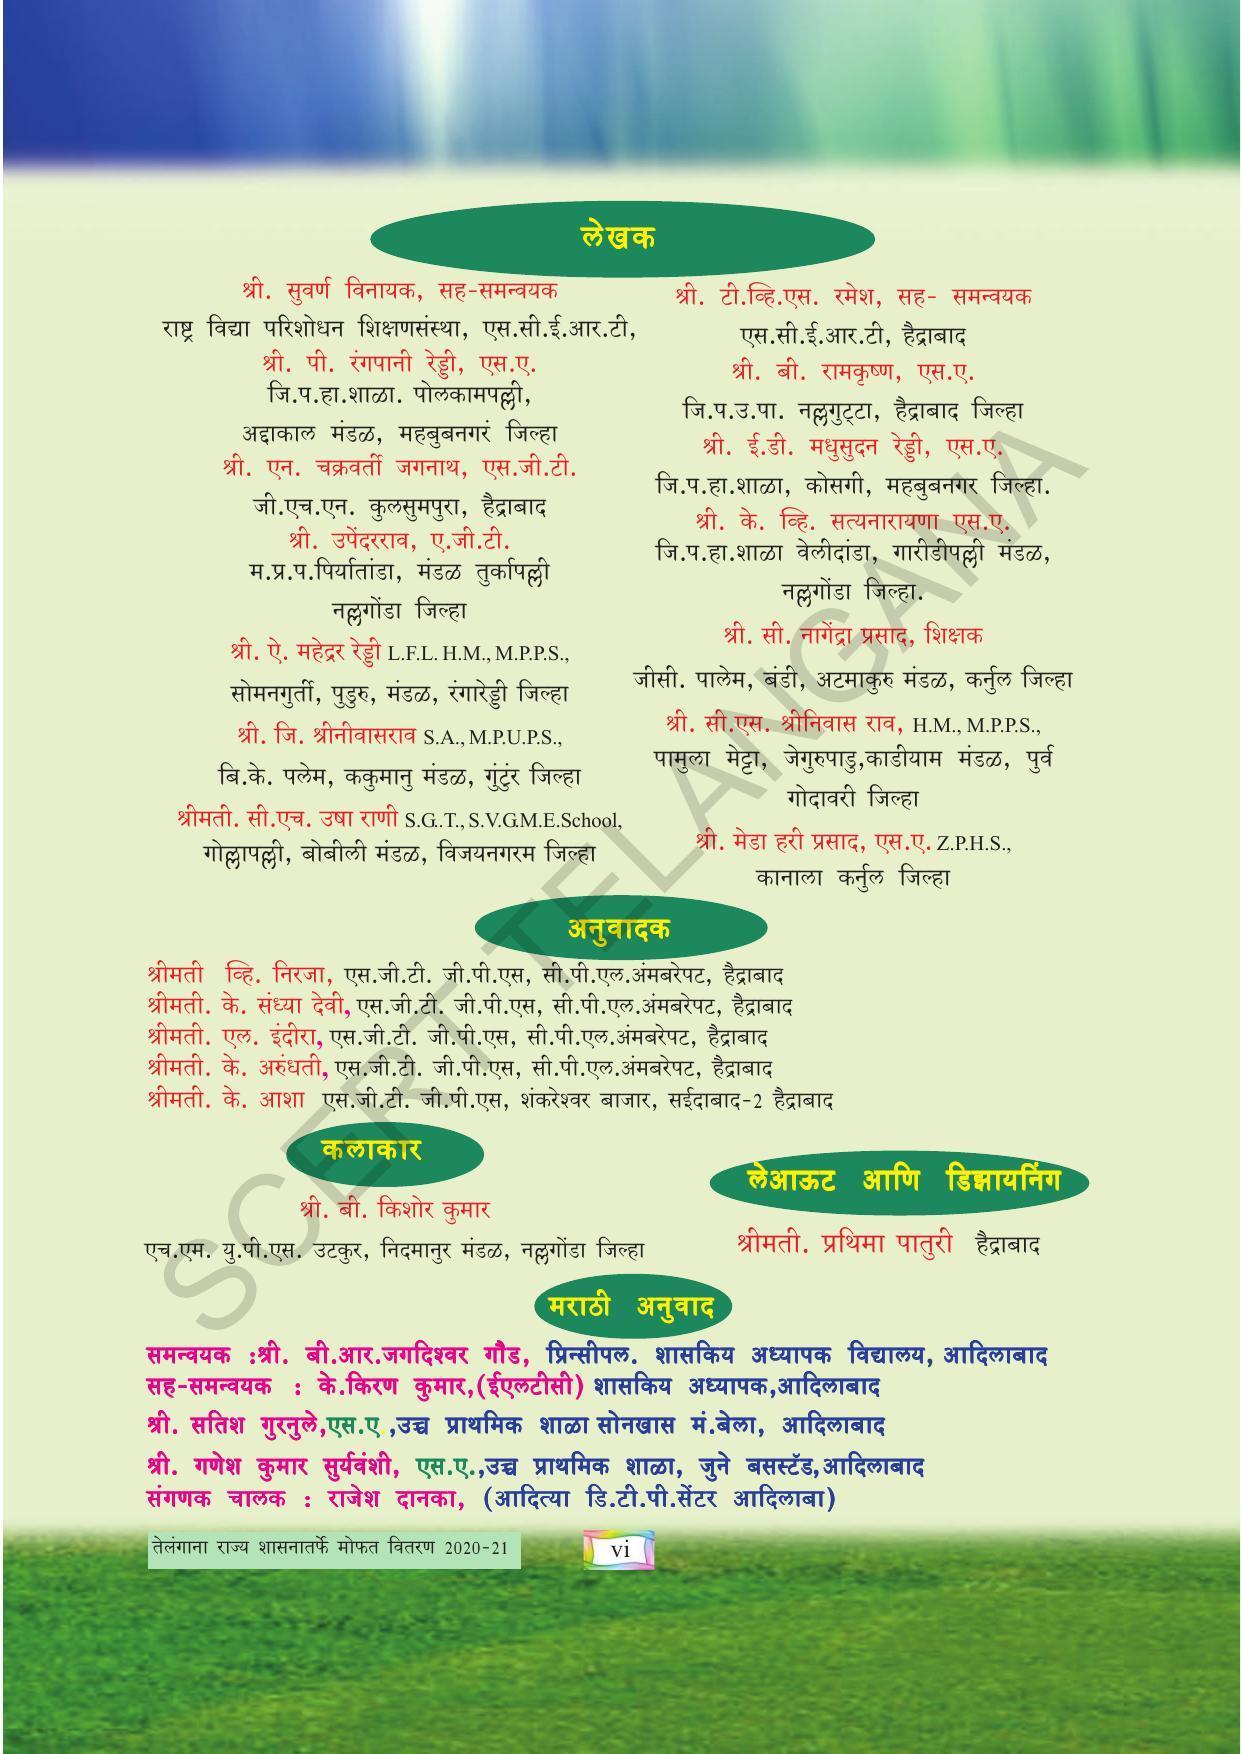 लेखक
श्री. सुवर्ण विनायक, सह-समन्वयक
राष्ट्र विद्या परिशोधन शिक्षणसंस्था, एस.सी.ई.आर.टी,
श्री. पी. रंगपानी रेड्डी, एस.ए.
जि.प.हा.शाळा. पोलकामपल्ली,
अद्दाकाल मंडळ, महबुबनगरं जिल्हा
श्री. एन. चक्रवर्ती जगनाथ, एस.जी.टी.
जी.एच.एन. कुलसुमपुरा, हैद्राबाद
श्री. उपेंदरराव, ए.जी.टी.
म.प्र.प.पिर्यातांडा, मंडळ तुर्कापल्ली
नल्लगोंडा जिल्हा
श्री. ऐ. महेद्रर रेड्डी L.F.L. H.M., M.P.P.S.,
सोमनगुर्ती, पुडुरु, मंडळ, रंगारेड्डी जिल्हा
श्री. जि. श्रीनीवासराव S.A., M.P.U.P.S.,
बि.के. पलेम, ककुमानु मंडळ, गुंटुंर जिल्हा
श्रीमती. सी.एच. उषा राणी S.G..T., S.V.G.M.E.School,
गोल्लापल्ली, बोबीली मंडळ, विजयनगरम जिल्हा
श्री. टी.व्हि.एस. रमेश, सह- समन्वयक
एस.सी.ई.आर.टी, हैद्राबाद
श्री. बी. रामकृष्ण, एस.ए.
जि.प.उ.पा. नल्लगुट्टा, हैद्राबाद जिल्हा
श्री. ई.डी. मधुसुदन रेड्डी, एस.ए.
जि.प.हा.शाळा, कोसगी, महबुबनगर जिल्हा.
श्री. के. व्हि. सत्यनारायणा एस.ए.
जि.प.हा.शाळा वेलीदांडा, गारीडीपल्ली मंडळ,
नल्लगोंडा जिल्हा.
श्री. सी. नागेंद्रा प्रसाद, शिक्षक
जीसी. पालेम, बंडी, अटमाकुरु मंडळ, कर्नुल जिल्हा
श्री. सी.एस. श्रीनिवास राव, H.M., M.P.P.S.,
पामुला मेट्टा, जेगुरुपाडु,काडीयाम मंडळ, पुर्व
गोदावरी जिल्हा
श्री. मेडा हरी प्रसाद, एस.ए. Z.P.H.S.,
कानाला कर्नुल जिल्हा
अनुवादक
श्रीमती व्हि. निरजा, एस.जी.टी. जी.पी.एस, सी.पी.एल.अंमबरेपट, हैद्राबाद
श्रीमती. के. संध्या देवी, एस.जी.टी. जी.पी.एस, सी.पी.एल.अंमबरेपट, हैद्राबाद
श्रीमती. एल. इंदीरा, एस.जी.टी. जी.पी.एस, सी.पी.एल.अंमबरेपट, हैद्राबाद
श्रीमती. के. अरुंधती, एस.जी.टी. जी.पी.एस, सी.पी.एल.अंमबरेपट, हैद्राबाद
श्रीमती. के. आशा एस.जी.टी. जी.पी.एस, शंकरेश्वर बाजार, सईदाबाद-2 हैद्राबाद
कलाकार
श्री. बी. किशोर कुमार
एच.एम. यु.पी.एस. उटकुर, निदमानुर मंडळ, नल्लगोंडा जिल्हा
लेआऊट आणि डिझायनिंग
श्रीमती. प्रथिमा पातुरी हैद्राबाद
मराठी अनुवाद
समन्वयक :श्री. बी.आर.जगदिश्वर गौड, प्रिन्सीपल. शासकिय अध्यापक विद्यालय, आदिलाबाद
सह-समन्वयक : के.किरण कुमार,(ईएलटीसी) शासकिय अध्यापक,आदिलाबाद
श्री. सतिश गुरनुले,एस.ए.,उच्च प्राथमिक शाळा सोनखास मं.बेला, आदिलाबाद
श्री. गणेश कुमार सुर्यवंशी, एस.ए.,उच्च प्राथमिक शाळा, जुने बसस्टॅड,आदिलाबाद
संगणक चालक : राजेश दानका, (आदित्या डि.टी.पी.सेंटर आदिलाबा)
तेलंगाना राज्य शासनातर्फे मोफत वितरण 2020-21
vi
SCERT TELANGANA